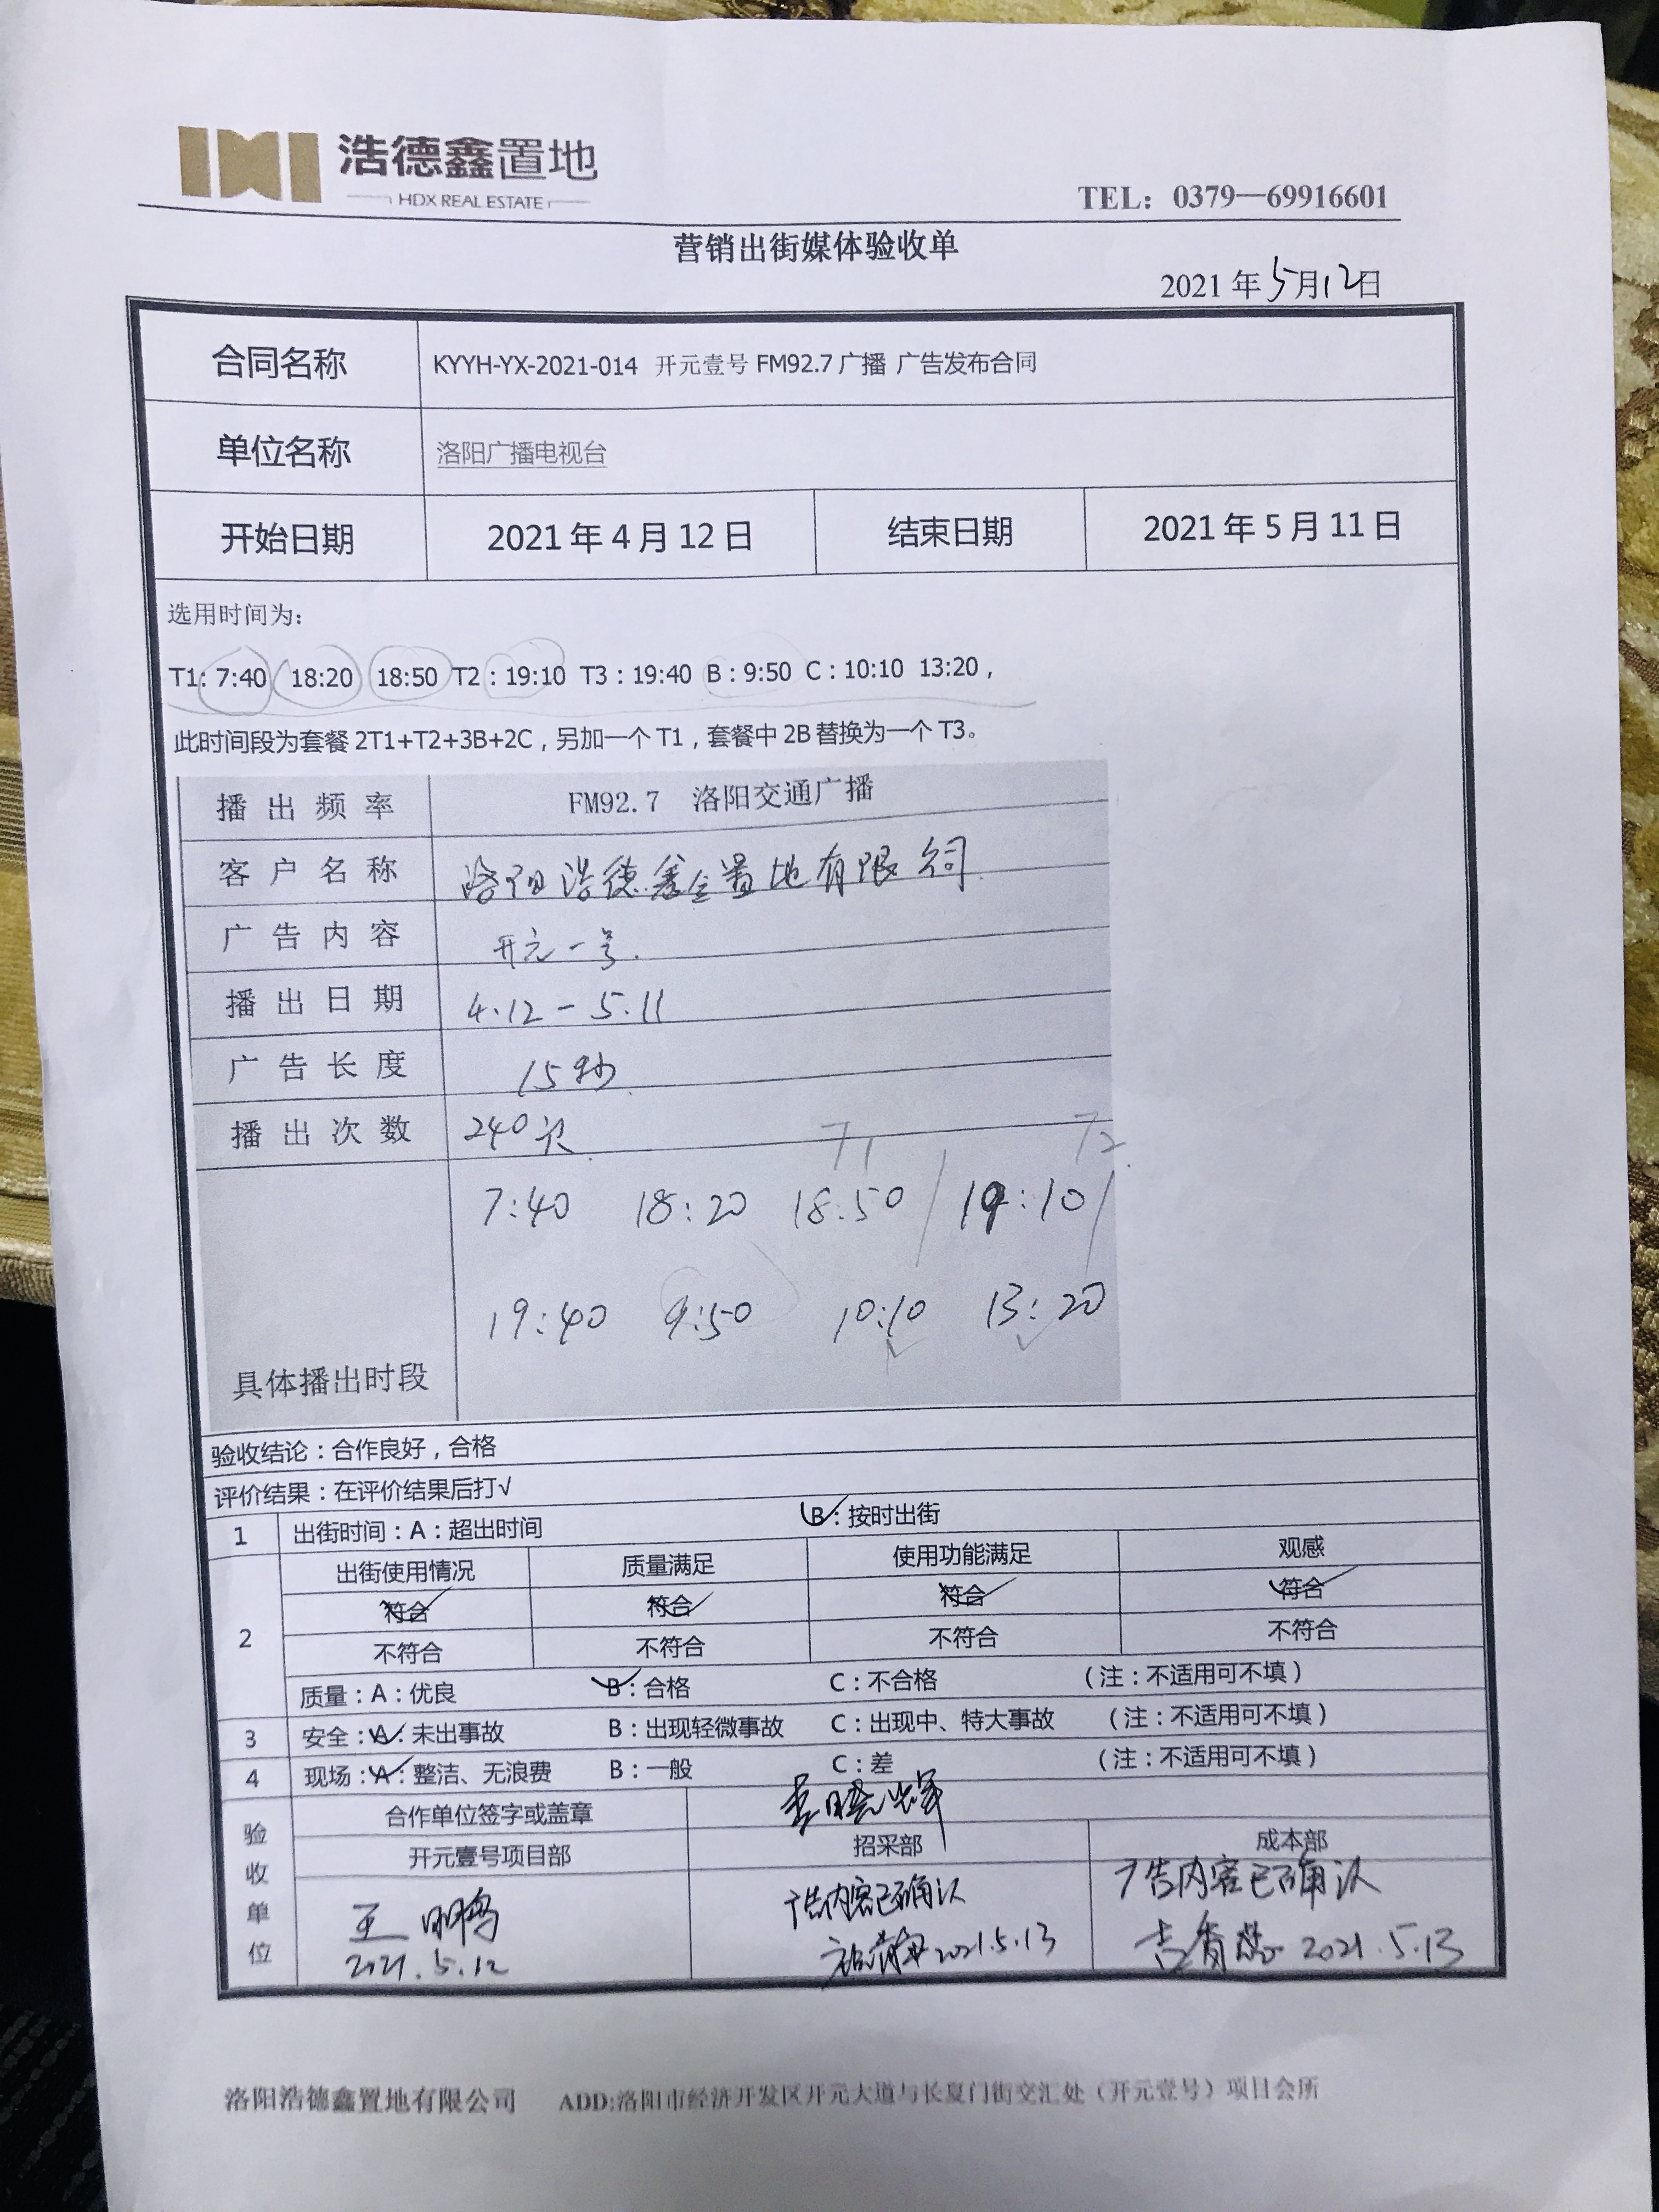 浩德鑫置地
HDX REAL ESTATE
TEL：0379—69916601
营销出街媒体验收单
2021 年 5 月 12 日
合同名称 KYYH-YX-2021-014 开元壹号 FM92.7 广播 广告发布合同
单位名称 洛阳广播电视台
开始日期 2021 年 4 月 12 日 结束日期 2021 年 5 月 11 日
选用时间为：
T1: 7:40 18:20 18:50 T2：19:10 T3：19:40 B：9:50 C：10:10 13:20，
此时间段为套餐 2T1+T2+3B+2C，另加一个 T1，套餐中 2B 替换为一个 T3。
播出频率 FM92.7 洛阳交通广播
客户名称 洛阳浩德鑫置地有限公司
广告内容 开元一号.
播出日期 4.12 - 5.11
广告长度 15秒
播出次数 240次 T1 T2
7:40 18:20 18:50 / 19:10 /
19:40 9:50 10:10 ✓ 13:20 ✓
具体播出时段
验收结论：合作良好，合格
评价结果：在评价结果后打√
1 出街时间：A：超出时间 B：按时出街
出街使用情况 质量满足 使用功能满足 观感
符合 符合 符合 符合
2 不符合 不符合 不符合 不符合
质量：A：优良 B：合格 C：不合格 （注：不适用可不填）
3 安全：A：未出事故 B：出现轻微事故 C：出现中、特大事故 （注：不适用可不填）
4 现场：A：整洁、无浪费 B：一般 C：差 （注：不适用可不填）
验收单位 合作单位签字或盖章
开元壹号项目部 招采部 成本部
王明鹏 广告内容已确认 广告内容已确认
2021.5.12 2021.5.13 2021.5.13
洛阳浩德鑫置地有限公司 ADD:洛阳市经济开发区开元大道与长夏门街交汇处（开元壹号）项目会所